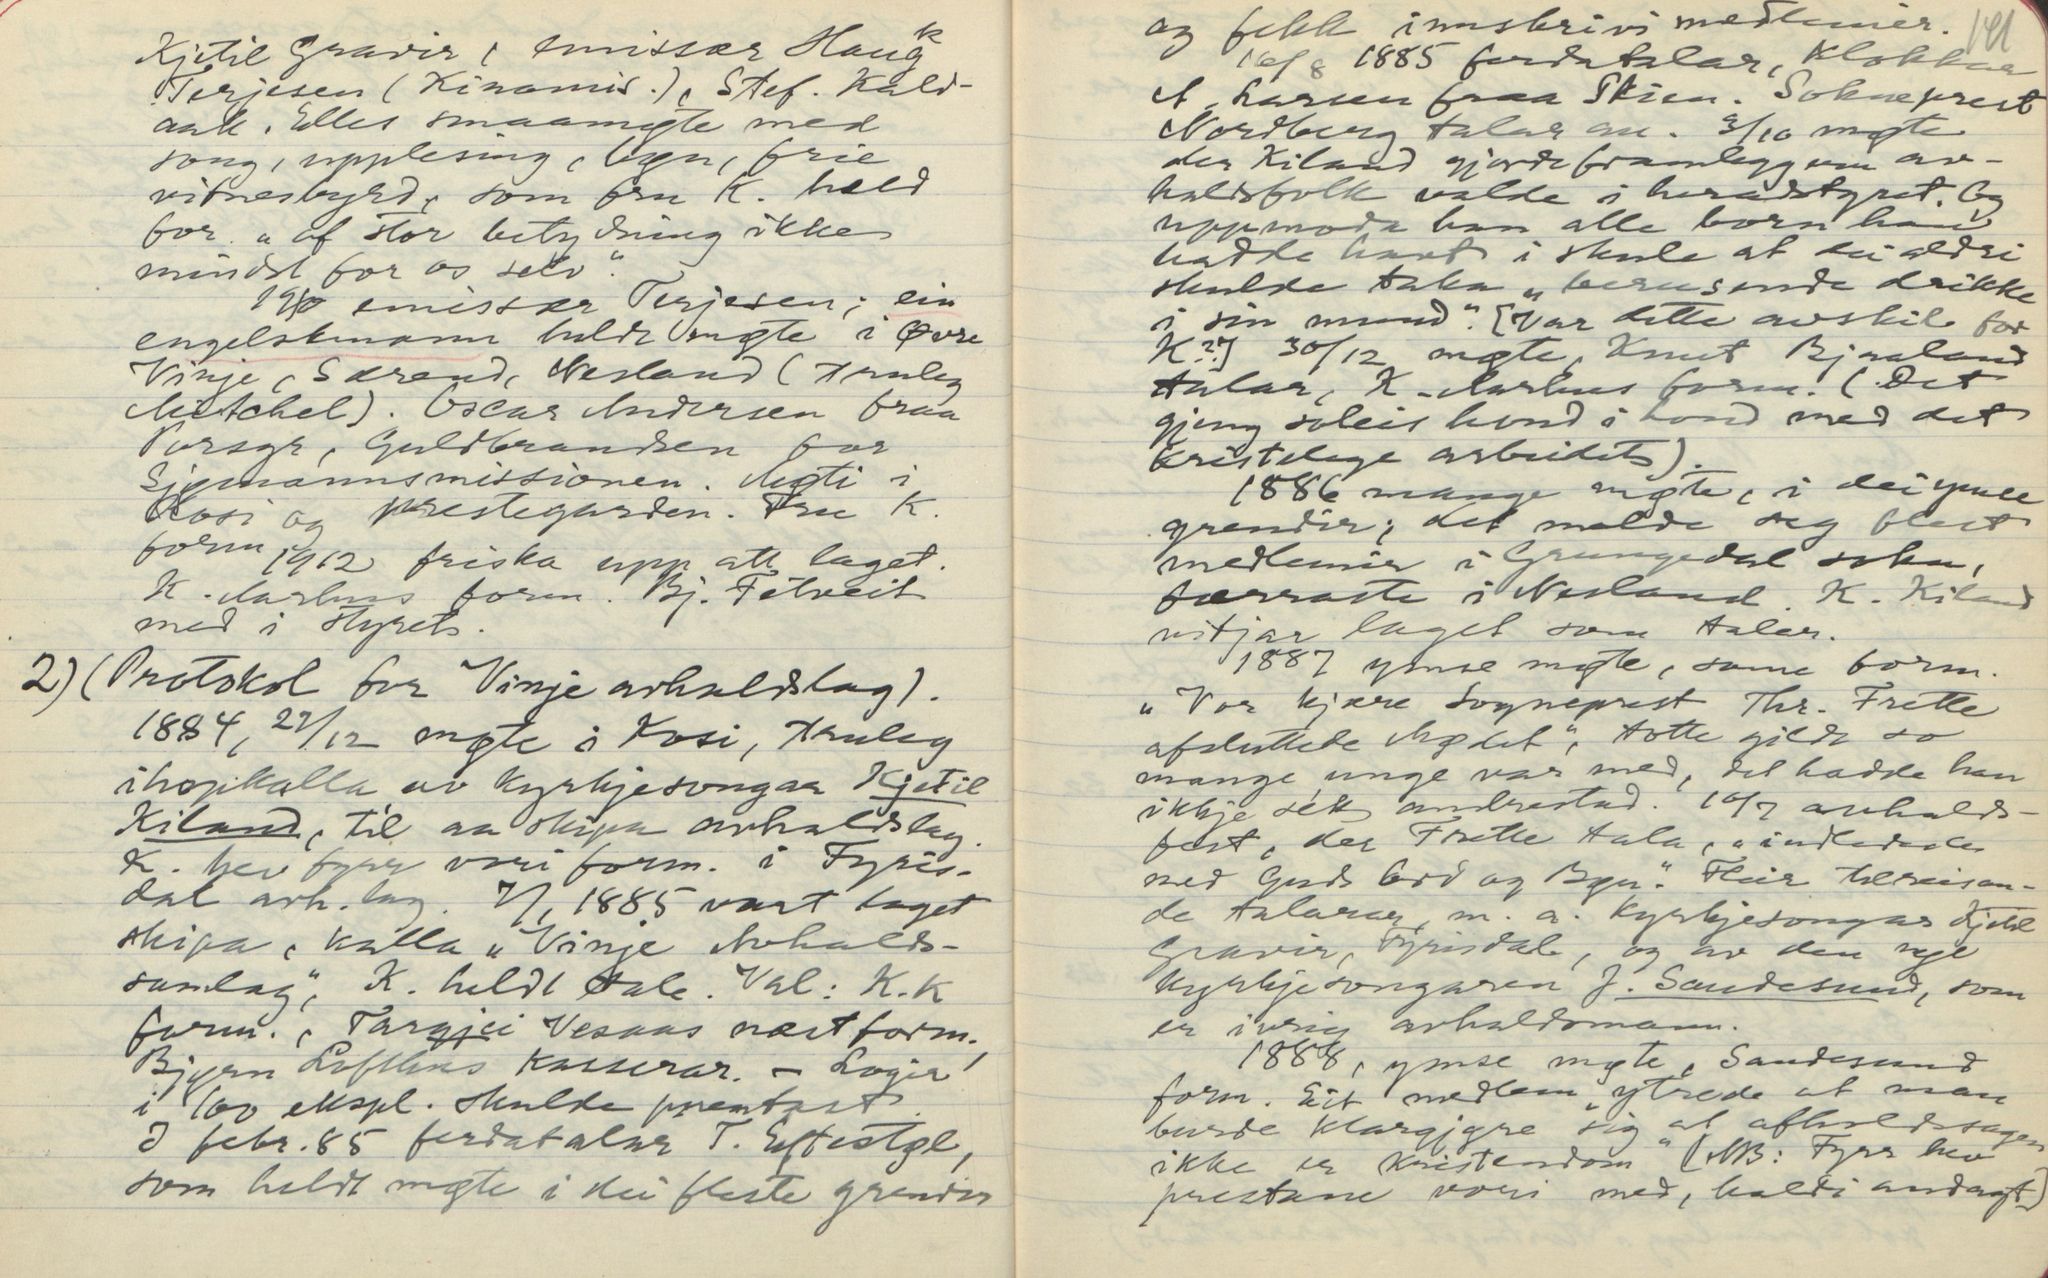 Kjetil Gravir, emissær Hauk
Terjesen (Kinamis.), Stef. Kald-
aak. Elles smaamøte med
song, upplesing, bøn, frie
vitnesbyrd, som fru K. held
for „af stor betydning ikke
mindst for os selv".
1910 emissær Terjesen; ein
engelskmann heldt møte i Øvre
Vinje, Særend, Nesland (truleg
Mitchel). Oscar Andersen fraa
Porsgr, Guldbrandsen for
Sjømannsmissionen. Møti i
Kosi og prestegarden. Fru K.
form.
1912 friska upp att laget.
K. Aarhus form. Bj. Felveit
med i styret.
2) (Protokol for Vinje avhaldslag).
1884, 27/12 møte i Kosi, truleg
ihopkalla av kyrkjesongar Kjetil
Kiland, til aa skipa avhaldslag.
K. hev fyrr vori form. i Fyris-
dal avh.lag. 7/1 1885 vart laget
skipa, kalla „Vinje Avholds-
samlag", K. heldt tale. Val: K.K
form., Targjei Vesaas næstform.,
Bjørn Lofthus kasserar. – Logir
i 100 ekspl. skulde prentast.
I febr. 85 ferdatalar T. Eftestøl,
som heldt møte i dei fleste grendir
141
og fekk innskrivi medlemier.
16/8 1885 ferdatalar, Klokkar
A. Larsen fraa Skien. Sokneprest
Nordberg talar au. 3/10 møte
der Kiland gjorde framlegg um av-
haldsfolk valde i heradstyret. Og
uppmoda han alle born han
hadde havt i skule at dei aldri
skulde taka „berusende drikke
i sin mund". [Var dette avskil for
K?] 30/12 møte, Knut Bjaaland
talar, K. Aarhus form. (Det
gjeng soleis hond i hond med det
kristelege arbeidet).
1886 mange møte, i dei ymse
grendir; det melde seg flest
medlemir i Grungedal sokn,
færraste i Nesland. K. Kiland
vitjar laget som talar.
1887 ymse møte, same form.
„Vor kjære Sogneprest Thr. Frette
afsluttede Mødet", totte gildt so
mange unge var med, det hadde han
ikkje sett andrestad. 10/7 avhalds-
fest, der Frette tala, „indledede
med Guds ord og Bøn". Fleir tilreisan-
de talarar, m. a. kyrkjesongar Kjetil
Gravir, Fyrisdal, og av den nye
kyrkjesongaren J. Sandesund, som
er ivrig avhaldsmann.
1888, ymse møte, Sandesund
form. Eit medlem „ytrede at man
burde klargjøre sig at afholdssagen
ikke er kristendom" [NB: Fyrr hev
prestane vori med, haldi andagt]